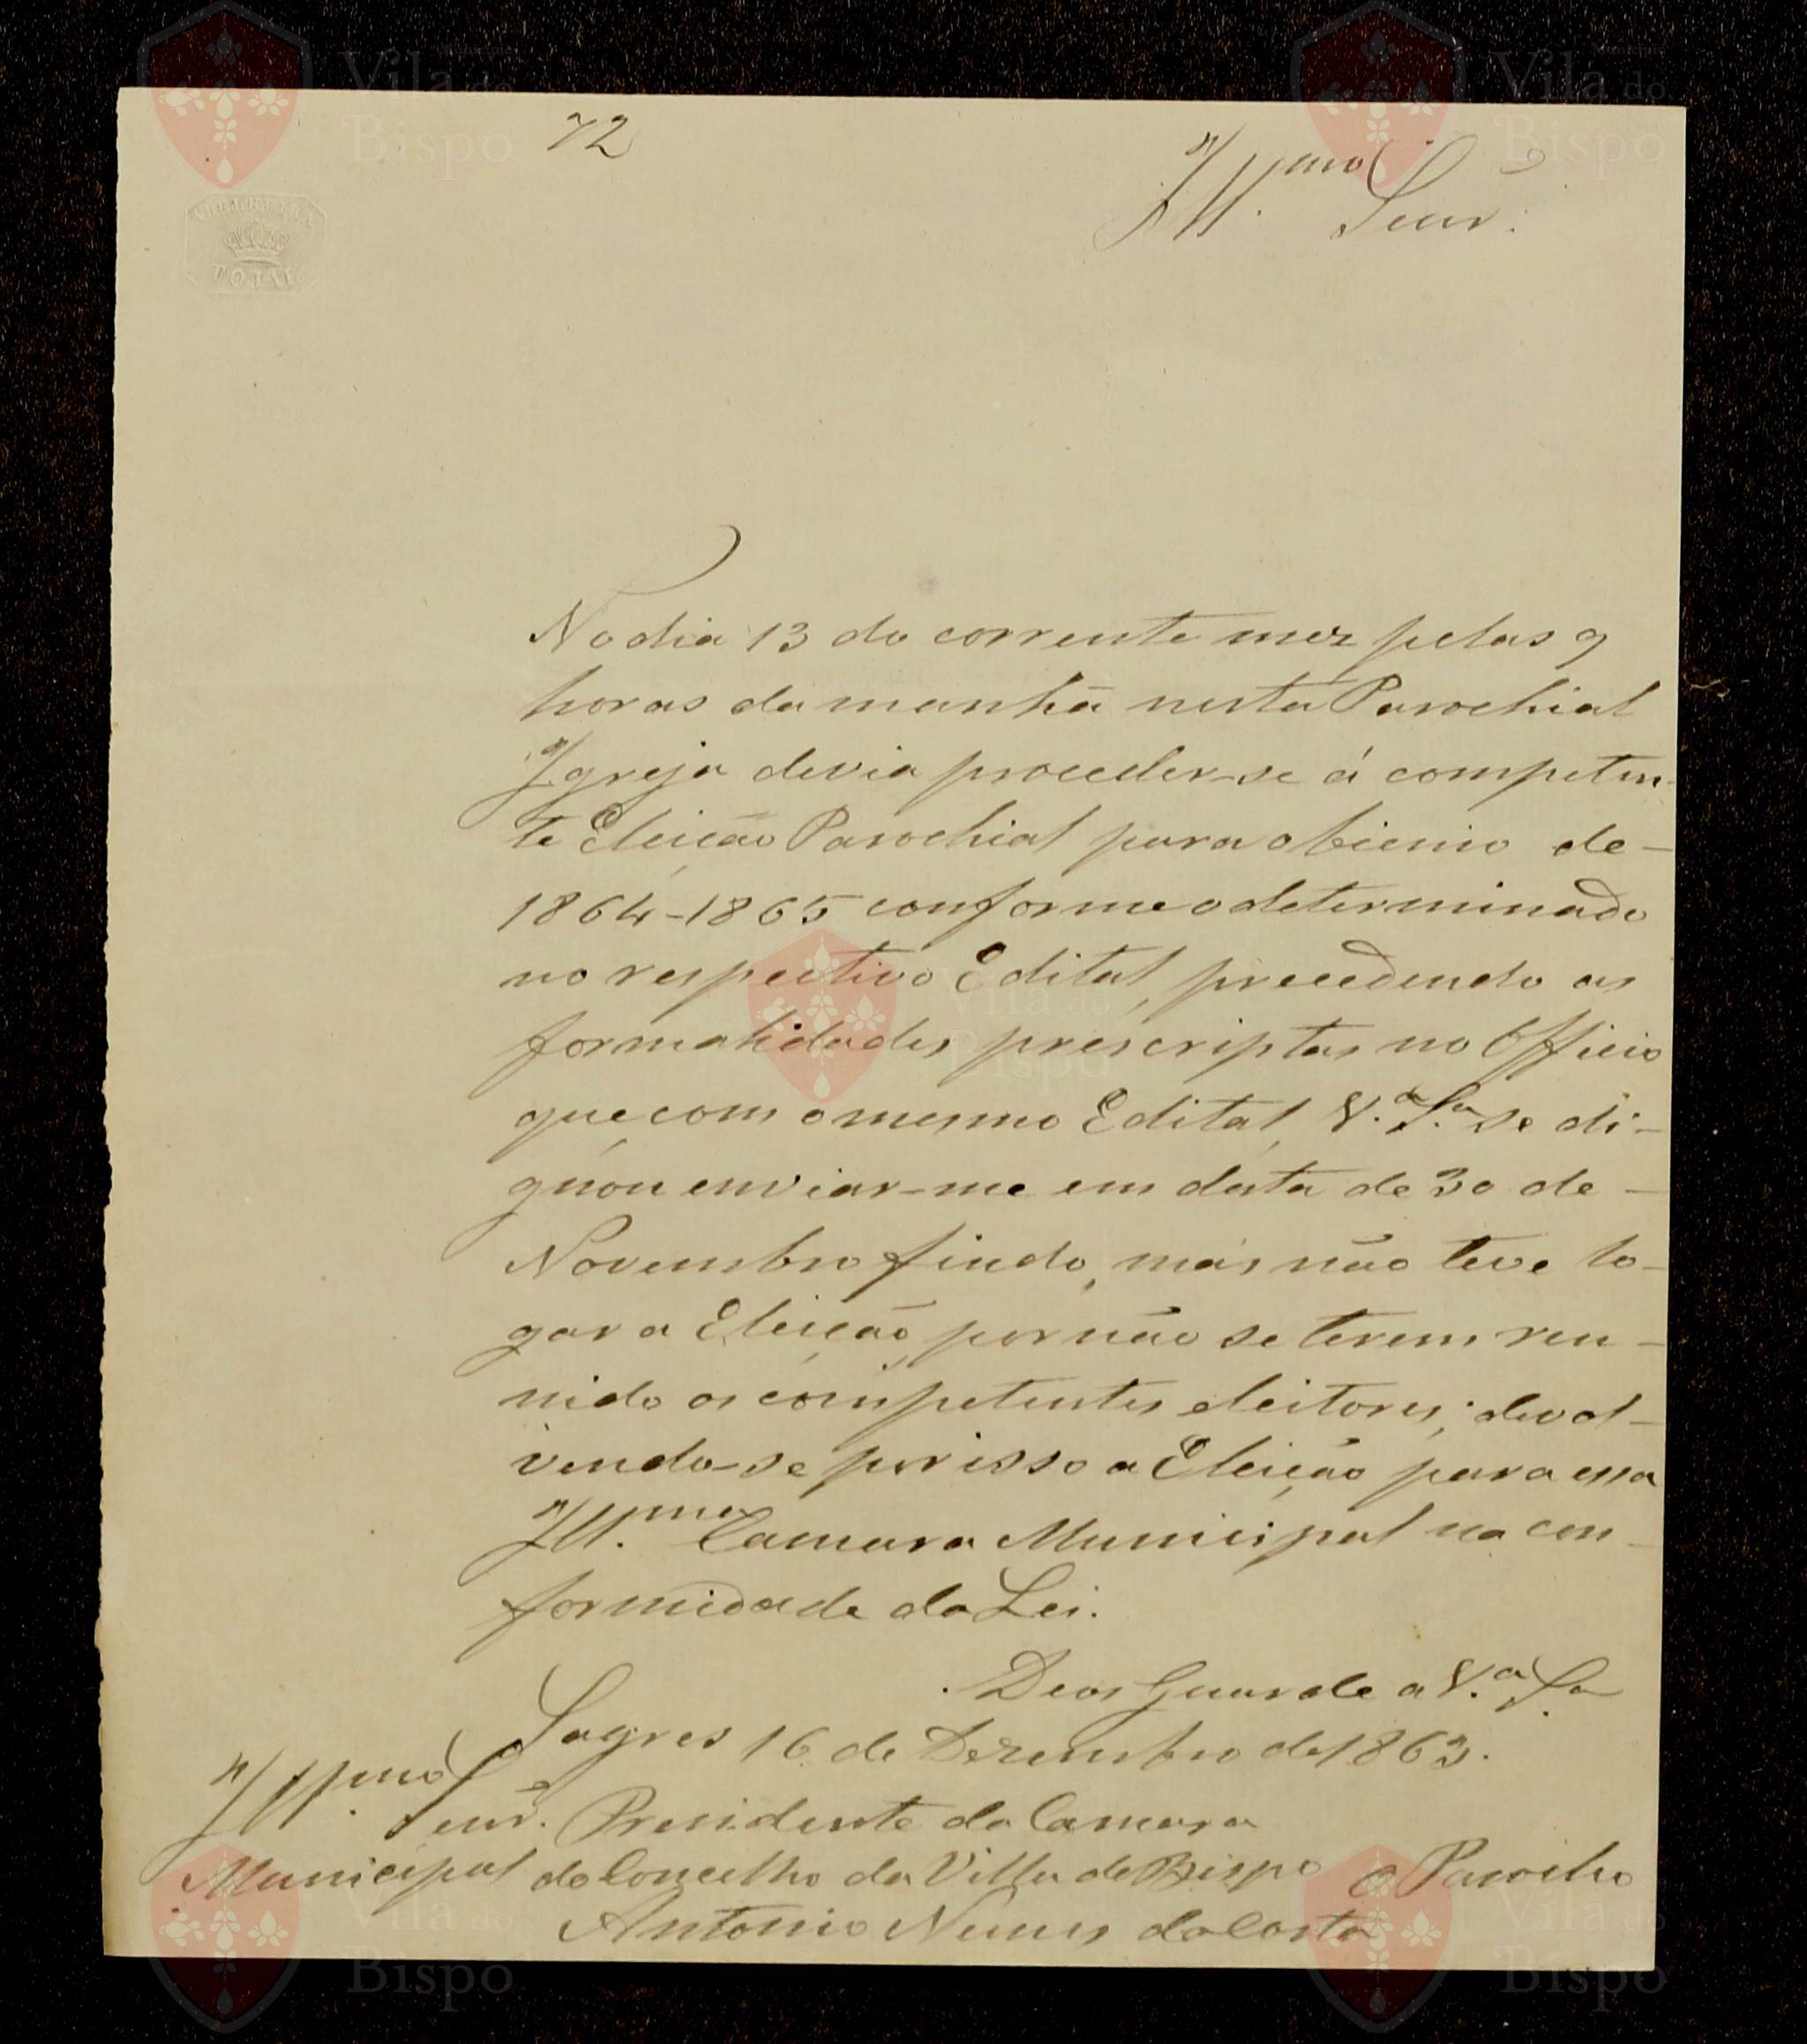 72
Ill.mo Senr.
No dia 13 do corrente mez pelas 9
horas da manhã nesta Parochial
Igreja devia proceder-se á competen-
te Eleição Parochial para o bienio de-
1864-1865 conforme o determinado
no respectivo Edital, precedendo as
formalidades prescriptas no Officio
que com o mesmo Edital, V.ª S.ª se di-
gnou enviar-me em data de 30 de -
Novembro findo, mas não teve lo-
gar a Eleição, por não se terem reu-
nido os competentes eleitores; devol-
vendo-se por isso a Eleição para essa
Ill.ma Camara Municipal na con-
formidade da Lei.
Deos Guarde a V.ª S.ª
Sagres 16 de Dezembro de 1863.
Ill.mo Senr. Presidente da Camara
Municipal do Concelho da Villa do Bispo O Parocho
Antonio Nunes da Costa
Vila do
Bispo